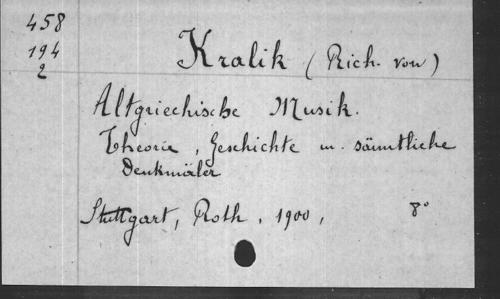 458
194
2
Kralik (Rich. von)
Altgriechische Musik.
Theorie, Geschichte u. sämmtliche
Denkmäler
Stuttgart, Roth, 1900, 8°